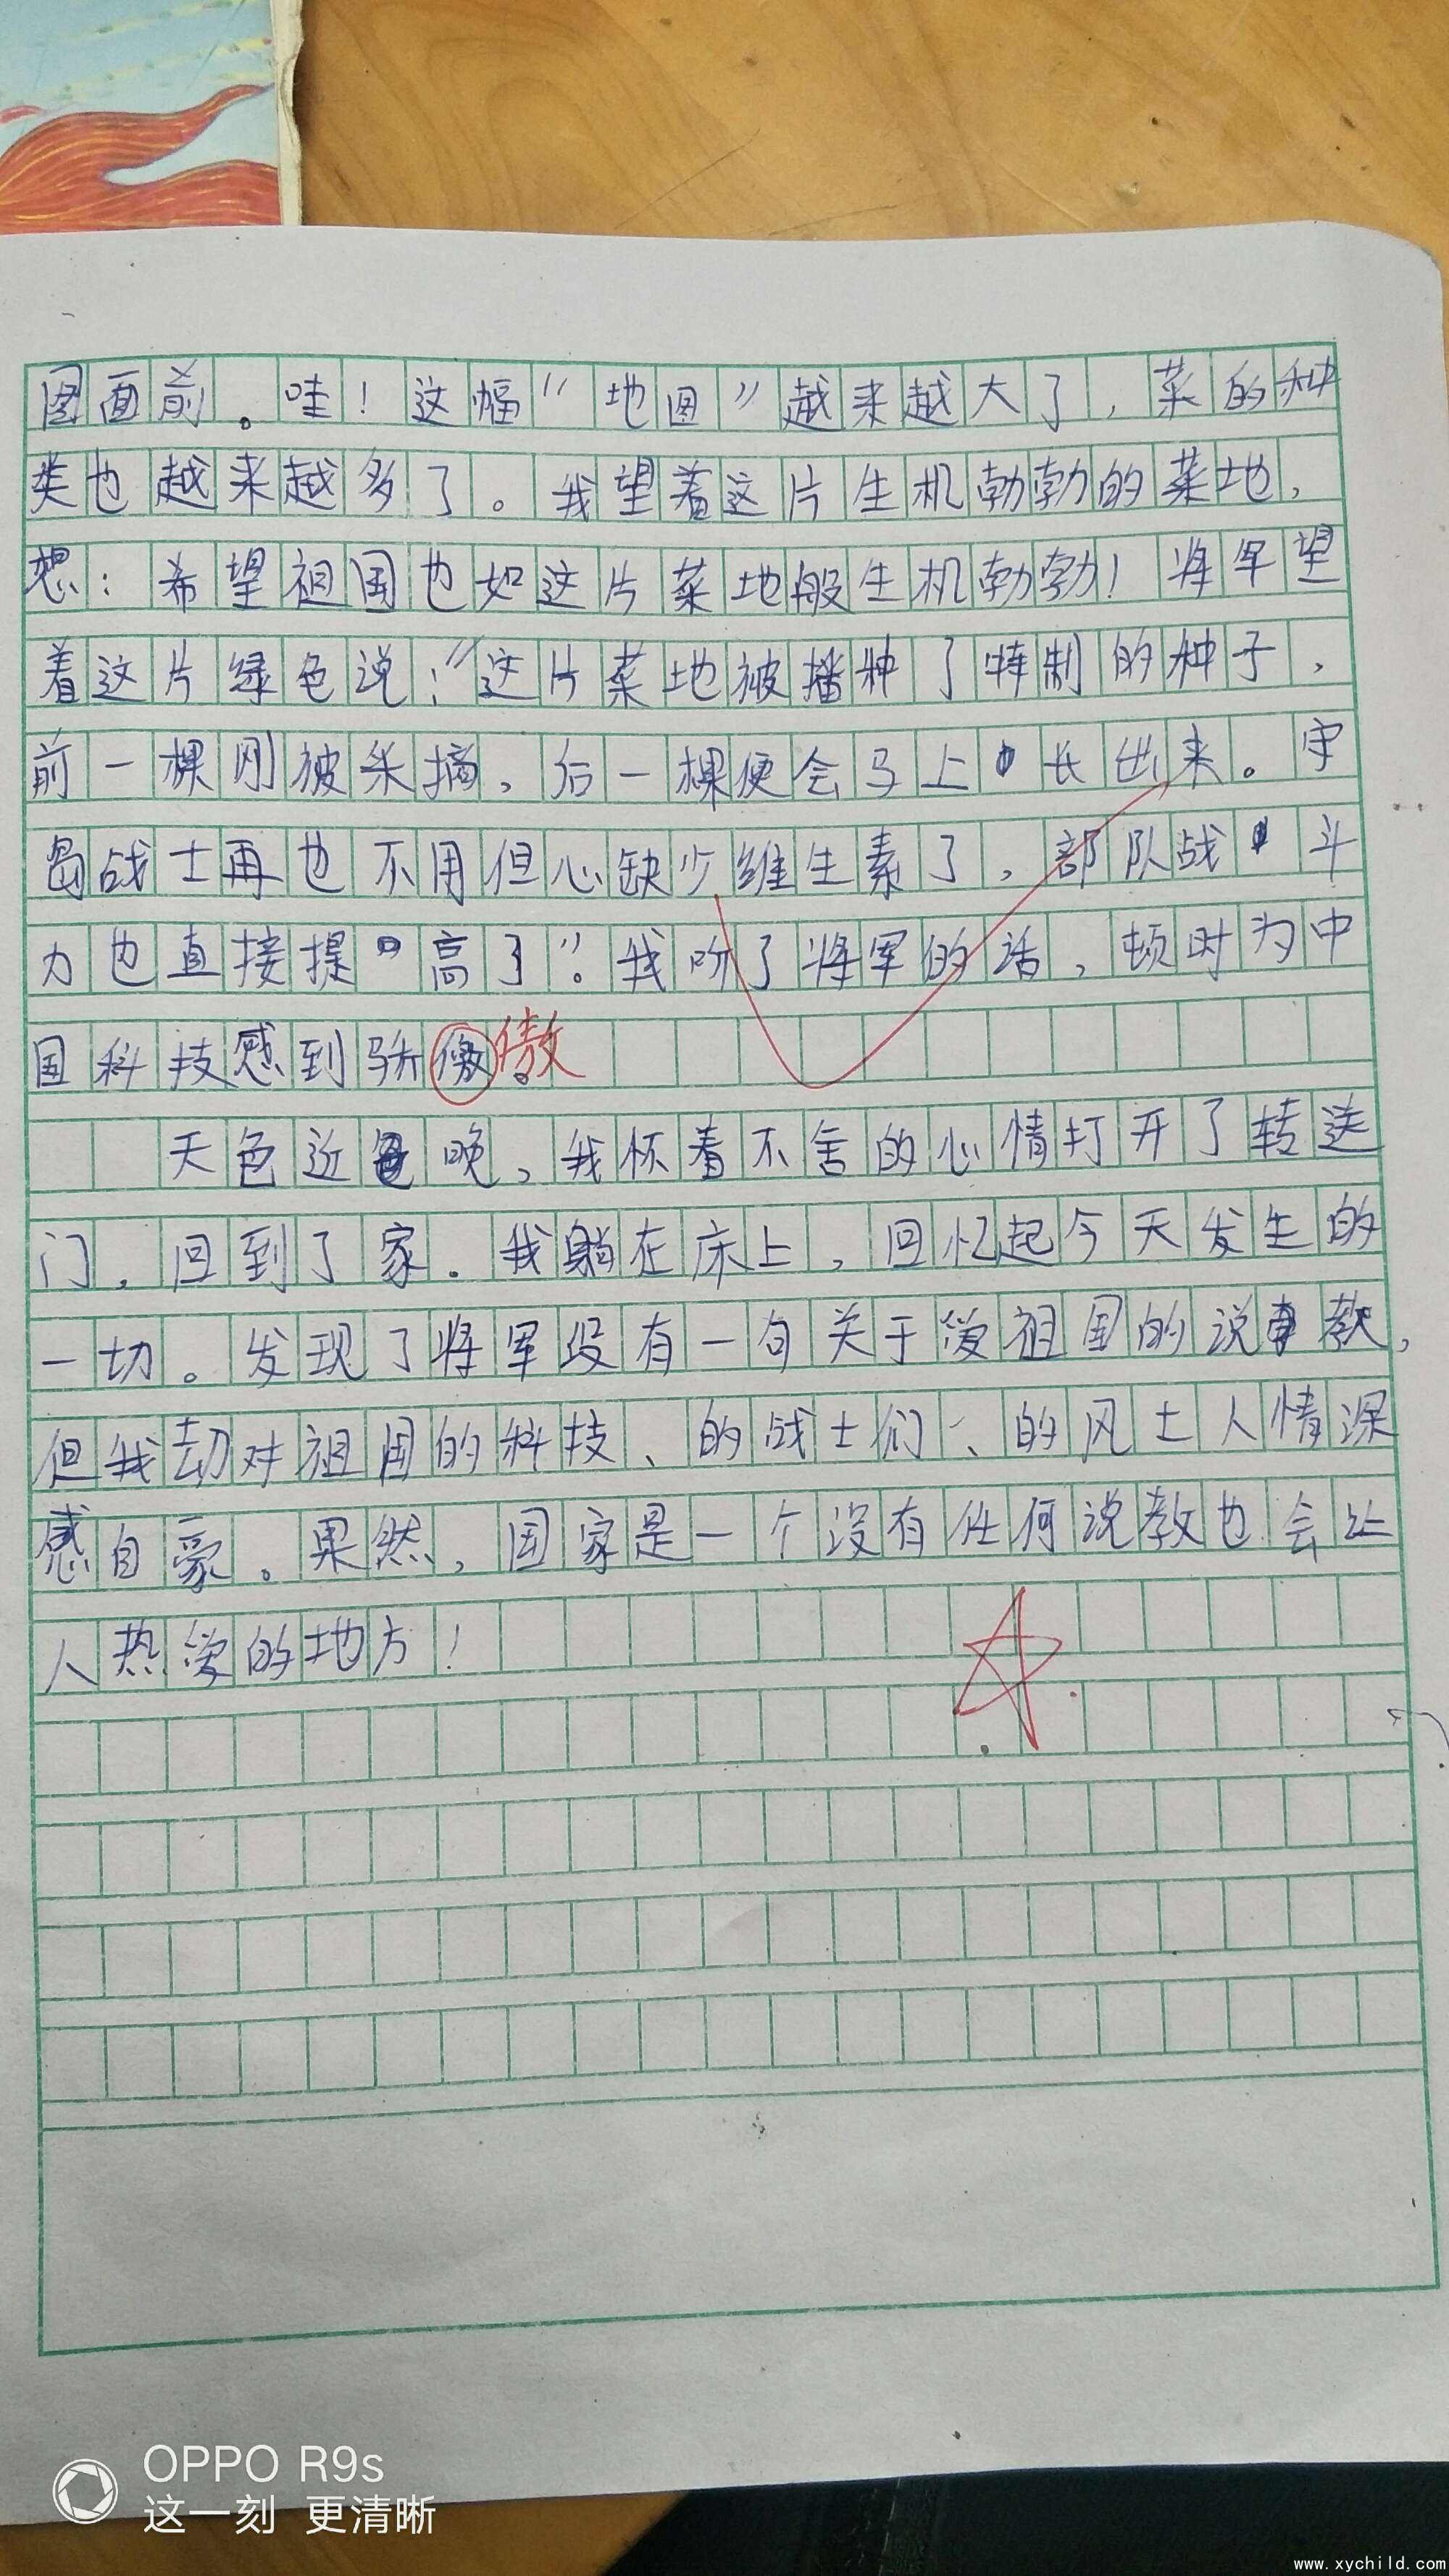 图面前。哇！这幅“地图”越来越大了，菜的种
类也越来越多了。我望着这片生机勃勃的菜地，
想：希望祖国也如这片菜地般生机勃勃！将军望
着这片绿色说：“这片菜地被播种了特制的种子，
前一棵刚被采摘，后一棵便会马上长出来。守
岛战士再也不用但心缺少维生素了，部队战斗
力也直接提高了”。我听了将军的话，顿时为中
国科技感到骄傲。傲
天色近晚，我怀着不舍的心情打开了转送
门，回到了家。我躺在床上，回忆起今天发生的
一切。发现了将军没有一句关于爱祖国的说教，
但我却对祖国的科技、的战士们、的风土人情深
感自豪。果然，国家是一个没有任何说教也会让
人热爱的地方！
OPPO R9s
这一刻 更清晰
www.xychild.com